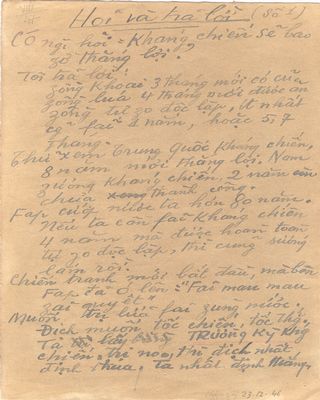 Hỏi và trả lời (Số 1)
Có ng̀ hỏi = Kháng chiến sẽ bao
zờ thắng lợi?
Tôi trả lời,
zồng khoai 3 tháng mới có củ
zồng lúa 4 tháng mới được ăn
zồng tự zo độc lập, ít nhất
cg fải 4 năm, hoặc 5, 7
tháng.
Thử xem Trung Quốc kháng chiến,
8 năm mới thắng lợi. Nam
zương kháng chiến 2 năm
chưa thành công.
Fáp cướp nước ta hơn 80 năm.
Nếu ta cần fải kháng chiến
4 năm mà được hoàn toàn
tự zo độc lập, thì cũng sướng
lắm rồi.
Chiến tranh mới bắt đầu, mà bên
Fáp đã ó lên: "Fải mau mau
zải quyết"
Muốn lúa fải zùng nước.
Địch muốn tốc chiến, tốc thg̀
Ta lấy TRƯỜNG KỲ Khg
chiến trị nó, thì địch nhất
định thua, ta nhất định thắng.
23-12-46